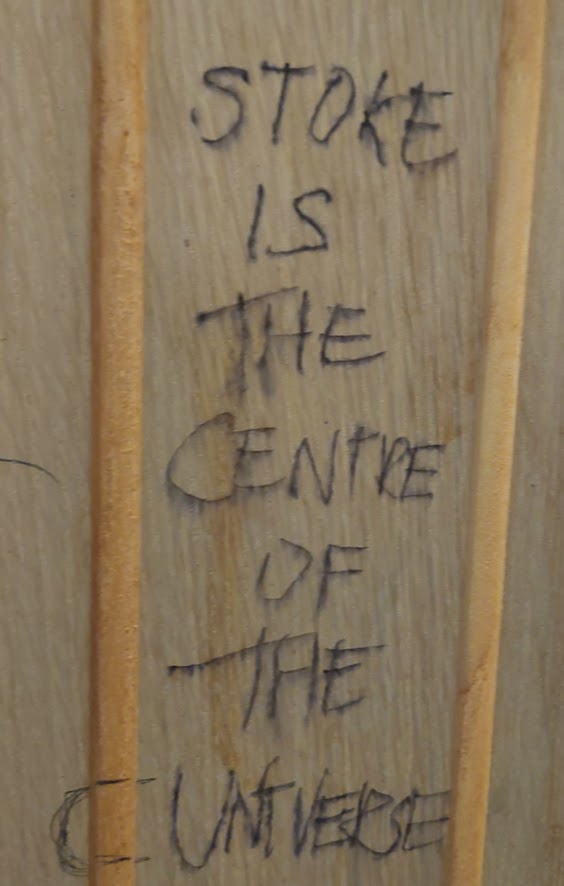 STOKE
IS
THE
CENTRE
OF
THE
UNIVERSE